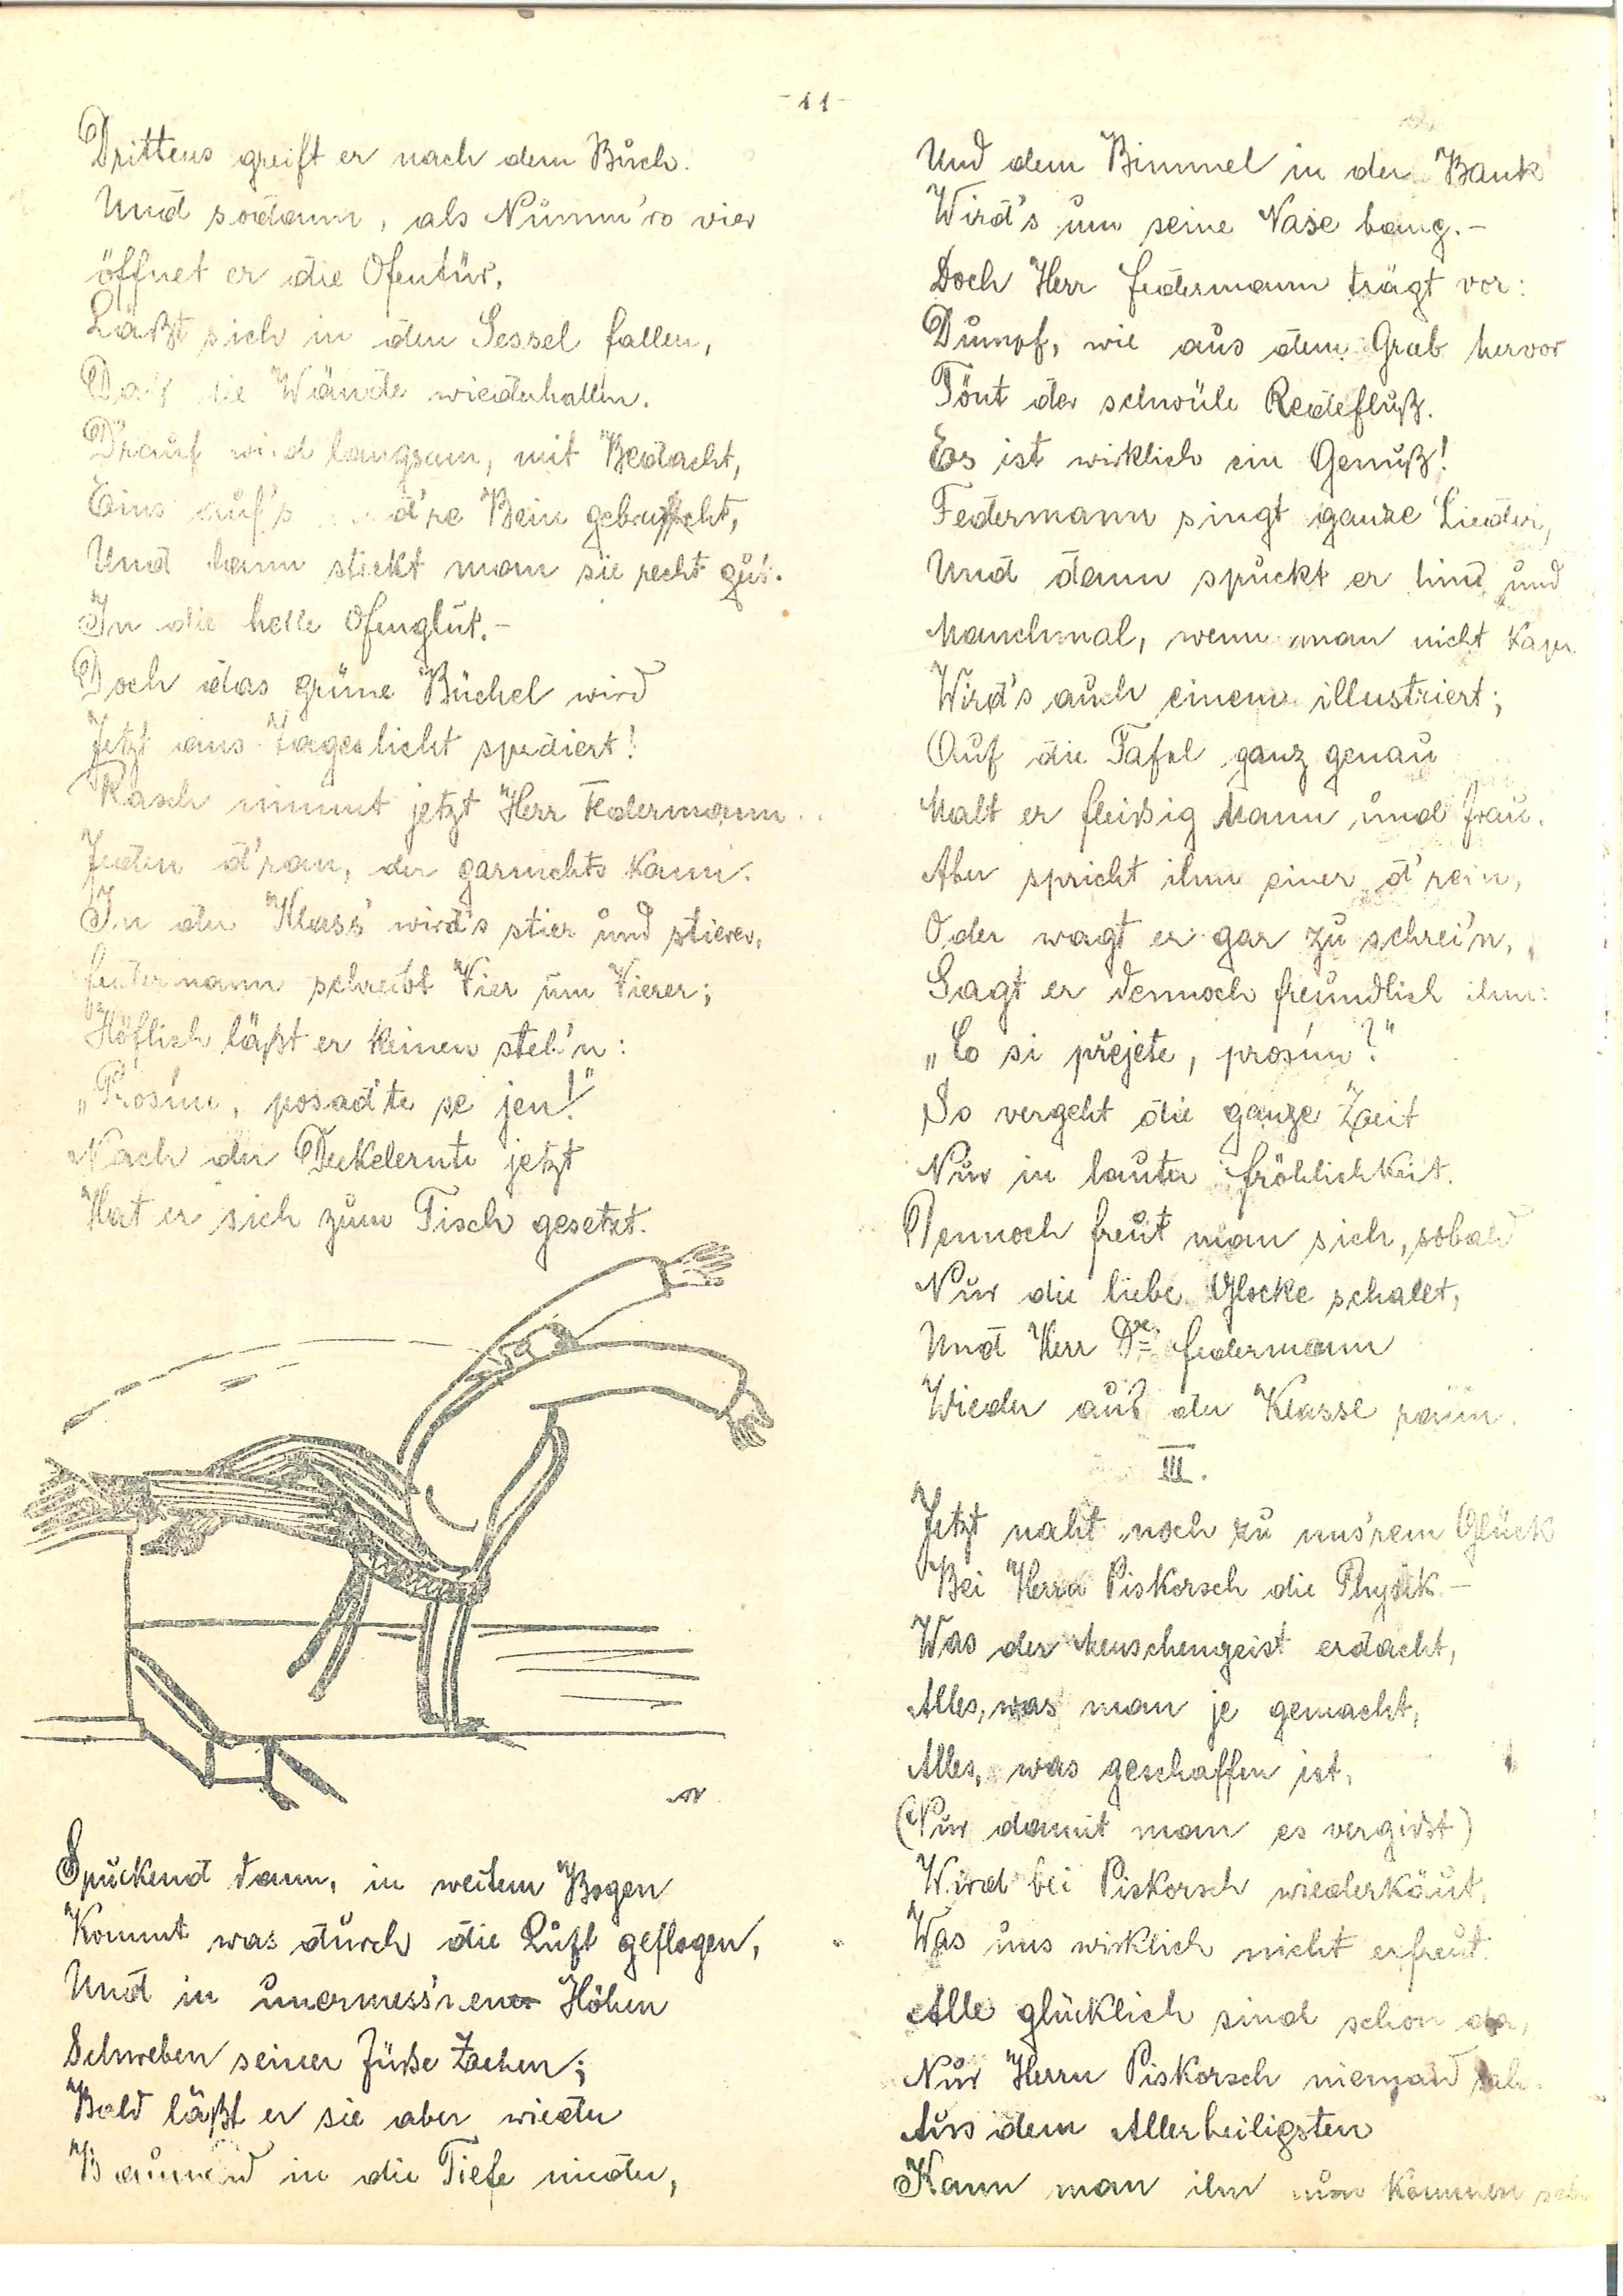 - 11 -
Drittens greift er nach dem Buch.
Und sodann, als Numm'ro vier
öffnet er die Ofentür,
Läßt sich in den Sessel fallen,
Daß die Wände wiederhallen.
D'rauf wird langsam, mit Bedacht,
Eins auf's and're Bein gebracht,
Und dann steckt man sie recht gut
In die helle Ofenglut.-
Doch das grüne Büchel wird
Jetzt ans Tageslicht spediert!
Rasch nimmt jetzt Herr Federmann
Jeden d'ran, der garnichts kann.
In der Klass' wird's stier und stierer,
Federmann schreibt Vier um Vierer;
Höflich läßt er keinen steh'n:
„Prosím, posaďte se jen!"
Nach der Deckelernte jetzt
Hat er sich zum Tisch gesetzt.
AV
Spuckend dann, in weitem Bogen
Kommt was durch die Luft geflogen,
Und in unermess'nen Höhen
Schweben seiner Füße Zaehen;
Bald läßt er sie aber wieder
Baumelnd in die Tiefe nieder,
Und dem Bimmel in der Bank
Wird's um seine Nase bang.-
Doch Herr Federmann trägt vor:
Dumpf, wie aus dem Grab hervor
Tönt der schwüle Redefluß.
Es ist wirklich ein Genuß!
Federmann singt ganze Lieder,
Und dann spuckt er hin und
Manchmal, wenn man nicht kapi
Wird's auch einem illustriert;
Auf die Tafel ganz genau
Malt er fleißig Mann und Frau.
Aber spricht ihm einer d'rein,
Oder wagt er gar zu schrei'n,
Sagt er dennoch freundlich ihm:
„Co si přejete, prosím?"
So vergeht die ganze Zeit
Nur in lauter Fröhlichkeit.
Dennoch freut man sich, sobald
Nur die liebe Glocke schallt,
Und Herr Dr. Federmann
Wieder aus der Klasse rann.
III.
Jetzt naht noch zu uns'rem Glück
Bei Herrn Piskorsch die Physik.-
Was der Menschengeist erdacht,
Alles, was man je gemacht,
Alles, was geschaffen ist,
(Nur damit man es vergißt)
Wird bei Piskorsch wiederkäut,
Was uns wirklich nicht erfreut.
Alle glücklich sind schon da,
Nur Herrn Piskorsch niemand sah.
Aus dem Allerheiligsten
Kann man ihn nun kommen seh